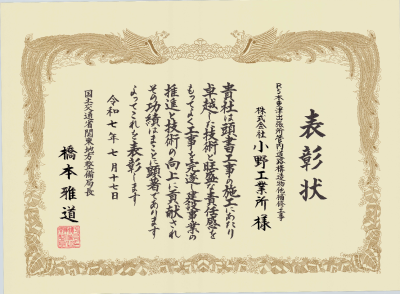 表彰状
R5木更津出張所管内道路構造物他補修工事
株式会社 小野工業所 様
貴社は頭書工事の施工にあたり
卓越した技術と旺盛な責任感を
もってよく工事を完遂し建設事業の
推進と技術の向上に貢献され
その功績はまことに顕著であります
よってこれを表彰します
令和七年七月十七日
国土交通省関東地方整備局長
橋本雅道